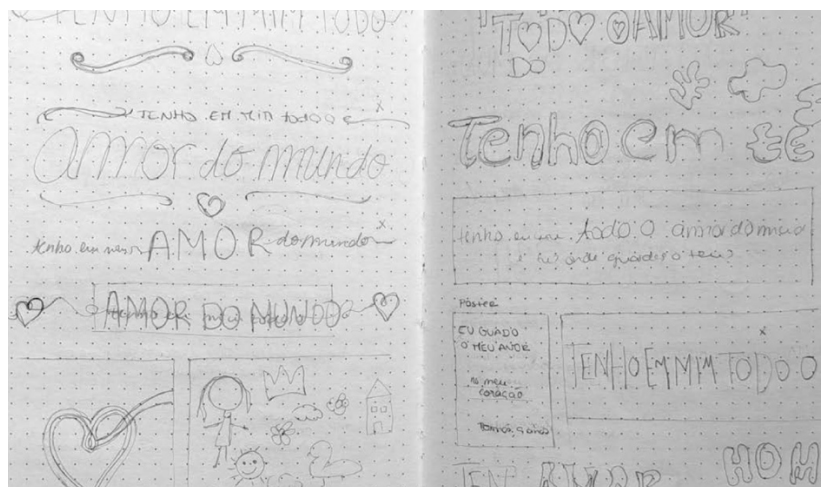 TENHO EM MIM TODO
TENHO EM MIM todo o
amor do mundo
tenho em mim AMOR do mundo
AMOR DO MUNDO
"TODO O AMOR"
DO
Tenho em
tenho em mim todo o amor do mundo
Póster
EU GUADO
O MEU AMOR
no meu
coração
TENHO EM MIM TODO O
AMOR
HOM